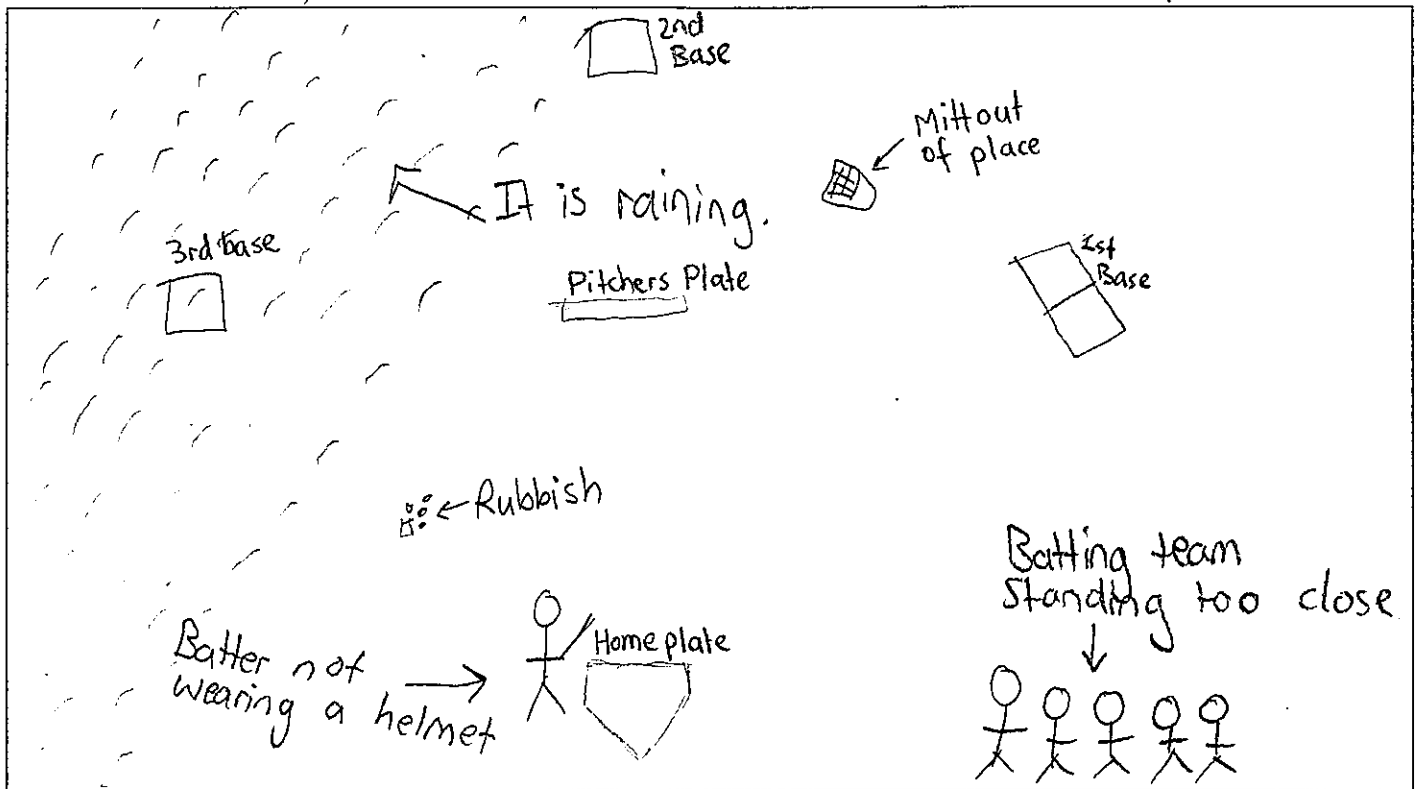 2nd
Base
Mitt out
of place
It is raining.
3rd base
1st
Base
Pitchers Plate
Rubbish
Batting team
standing too close
Batter not
wearing a helmet
Home plate